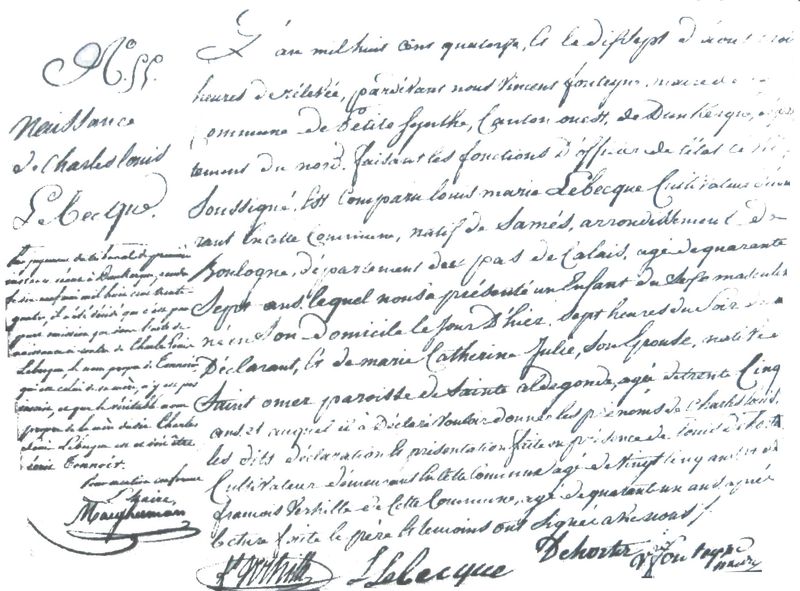 No. 55.
Naissance
de Charles louis
Lebecque.
Par jugement du tribunal de première
séant à Dunkerque, en date
du dix neuf juin mil huit cent trente
quatre, il a été décidé que c'est par
omission que dans l'acte de
naissance ci contre de Charles Louis
Lebecque, le nom propre de Tonnoir
qui est celui de sa mère, n'y est pas
inscrit, et que le véritable nom
propre de la mère du dit Charles
Louis Lebecque est et doit être
Tonnoir.
Pour mention conforme
Le Maire,
L'an mil huit cens quatorze, le dixsept d'aout
heures de relevée, pardevant nous Vincent fonteyne, maire de
Commune de Petite Synthe, Canton ouest, de Dunkerque,
tement du nord, faisant les fonctions d'officier de l'état
Soussigné, Est Comparu louis marie Lebecque Cultivateur
rant En cette Commune, natif de Samés, arrondissement de
Boulogne, département du pas de Calais, agé de quarante
Sept ans, lequel nous a présenté un Enfant du Sexe masculin
né en Son domicile le Jour D'hier, Sept heures du Soir de
Déclarant, Et de marie Catherine Julie, Son Epouse, native de
Saint omer paroisse de Sainte aldegonde, agée de trente Cinq
ans, et auquel il a Déclaré vouloir donner les prénoms de Charles louis,
les dits déclaration Et présentation faite en présence de louis dehorter
Cultivateur demeurant En cette Commune agé de vingt Cinq ans et de
francois Verhille de Cette Commune, agé de quarant un ans, après
lecture faite le père Et temoins ont Signée avec nous
Verhille Lebecque Dehorter fonteyne
maire